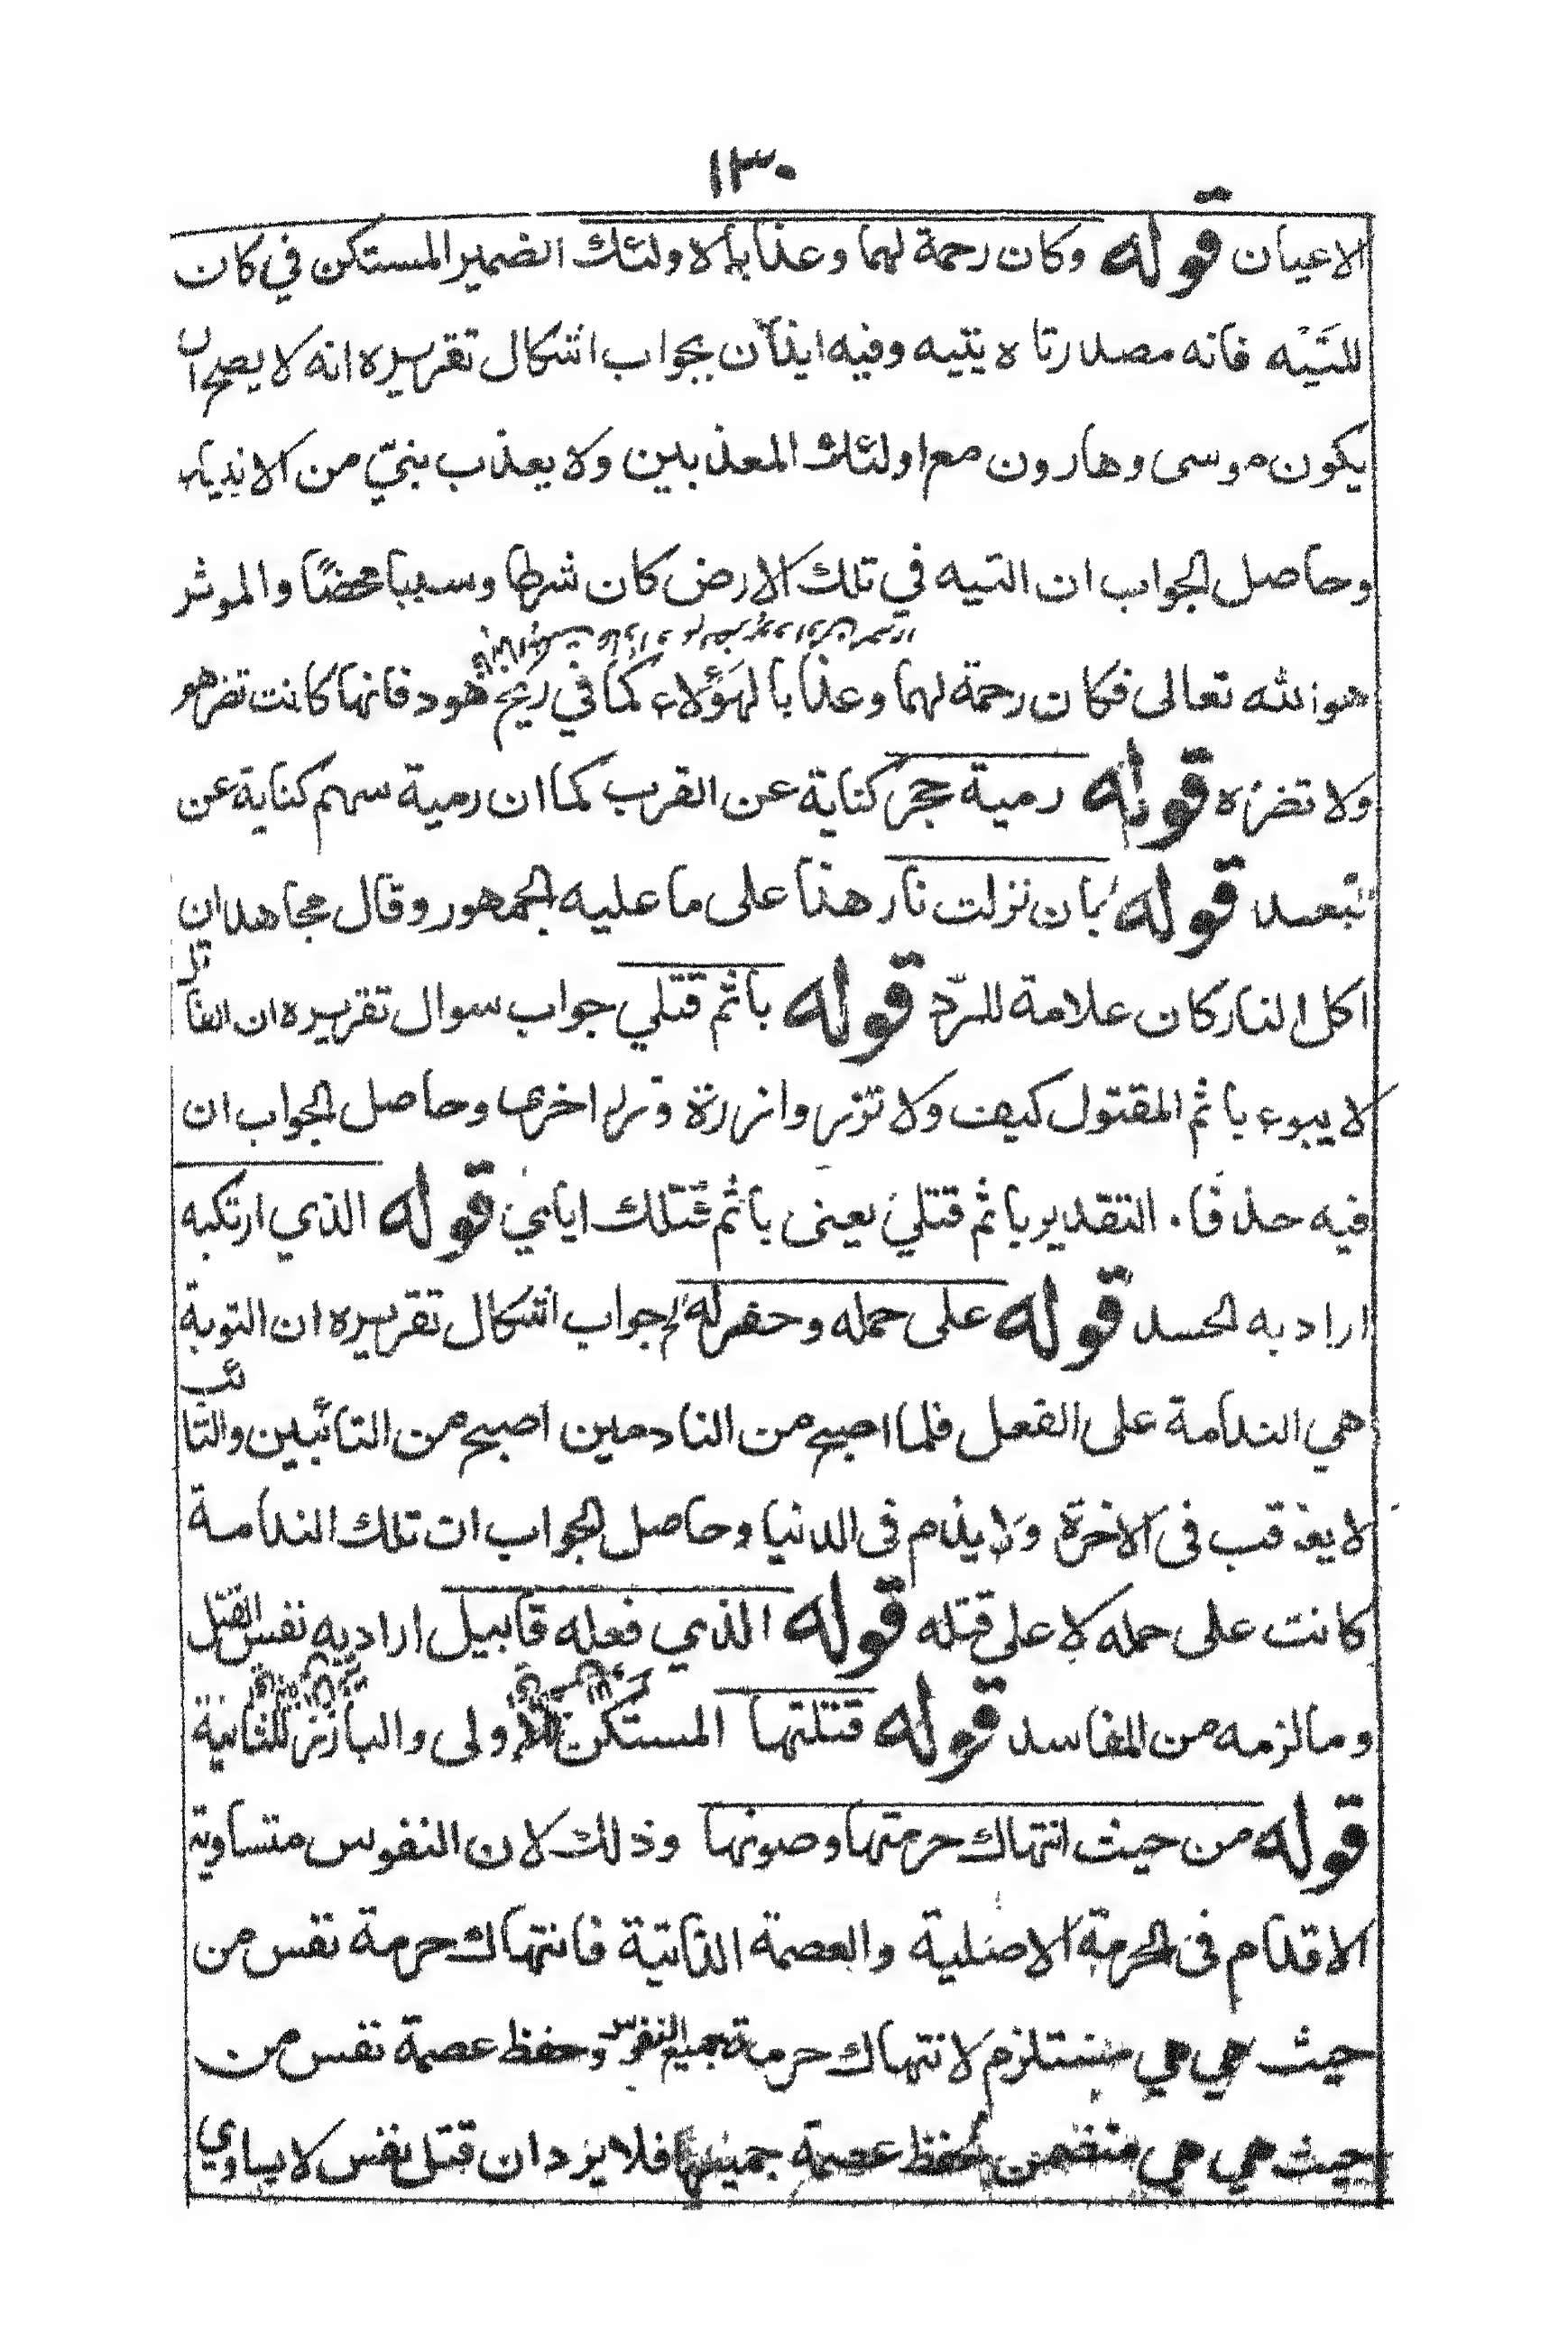 ١٣٠
الاعيان قوله وكان رحمة لهما وعذابا لاولئك الضمير المستكن في كان
للتَيْه فانه مصدر تاه يتيه وفيه ايذان بجواب اشكال تقريره انه لا يصح ان
يكون موسى وهارون مع اولئك المعذبين ولا يعذب بنيّ من الانبياء
وحاصل الجواب ان التيه في تلك الارض كان شرطا وسببا محضًا والموثر
هو الله تعالى فكان رحمة لهما وعذابا لهَؤُلاء كما في ريح هود فانها كانت تضرهم
ولا تضره قوله رمية حجر كناية عن القرب كما ان رمية سهم كناية عن
تبعد قوله بان نزلت نار هذا على ما عليه الجمهور وقال مجاهد ان
اكل النار كان علامة للرّد قوله باثم قتلي جواب سوال تقريره ان القاتل
لا يبوء باثم المقتول كيف ولا تزر وازرة وزر اخرى وحاصل الجواب ان
فيه حذفا. التقدير باثم قتلي يعنى باثم قتلك اياي قوله الذي ارتكبه
اراد به الحسد قوله على حمله وحفر له الخ جواب اشكال تقريره ان التوبة
هي الندامة على الفعل فلما اصبح من النادمين اصبح من التائبين والتائب
لا يعاقب فى الاخرة ولا يذم فى الدنيا وحاصل الجواب ان تلك الندامة
كانت على حمله لا على قتله قوله الذي فعله قابيل اراد به نفس القتل
وما لزمه من المفاسد قوله قتلتها المستكن للاولى والبارز للثانية
قوله من حيث انتهاك حرمتها وصونها وذلك لان النفوس متساوية
الاقدام فى الحرمة الاصلية والعصمة الذاتية فانتهاك حرمة نفس من
حيث هي هي مستلزم لانتهاك حرمة جميع النفوس وحفظ عصمة نفس من
حيث هي هي متضمن لحفظ عصمة جميعها فلا يرد ان قتل نفس لا يساوي